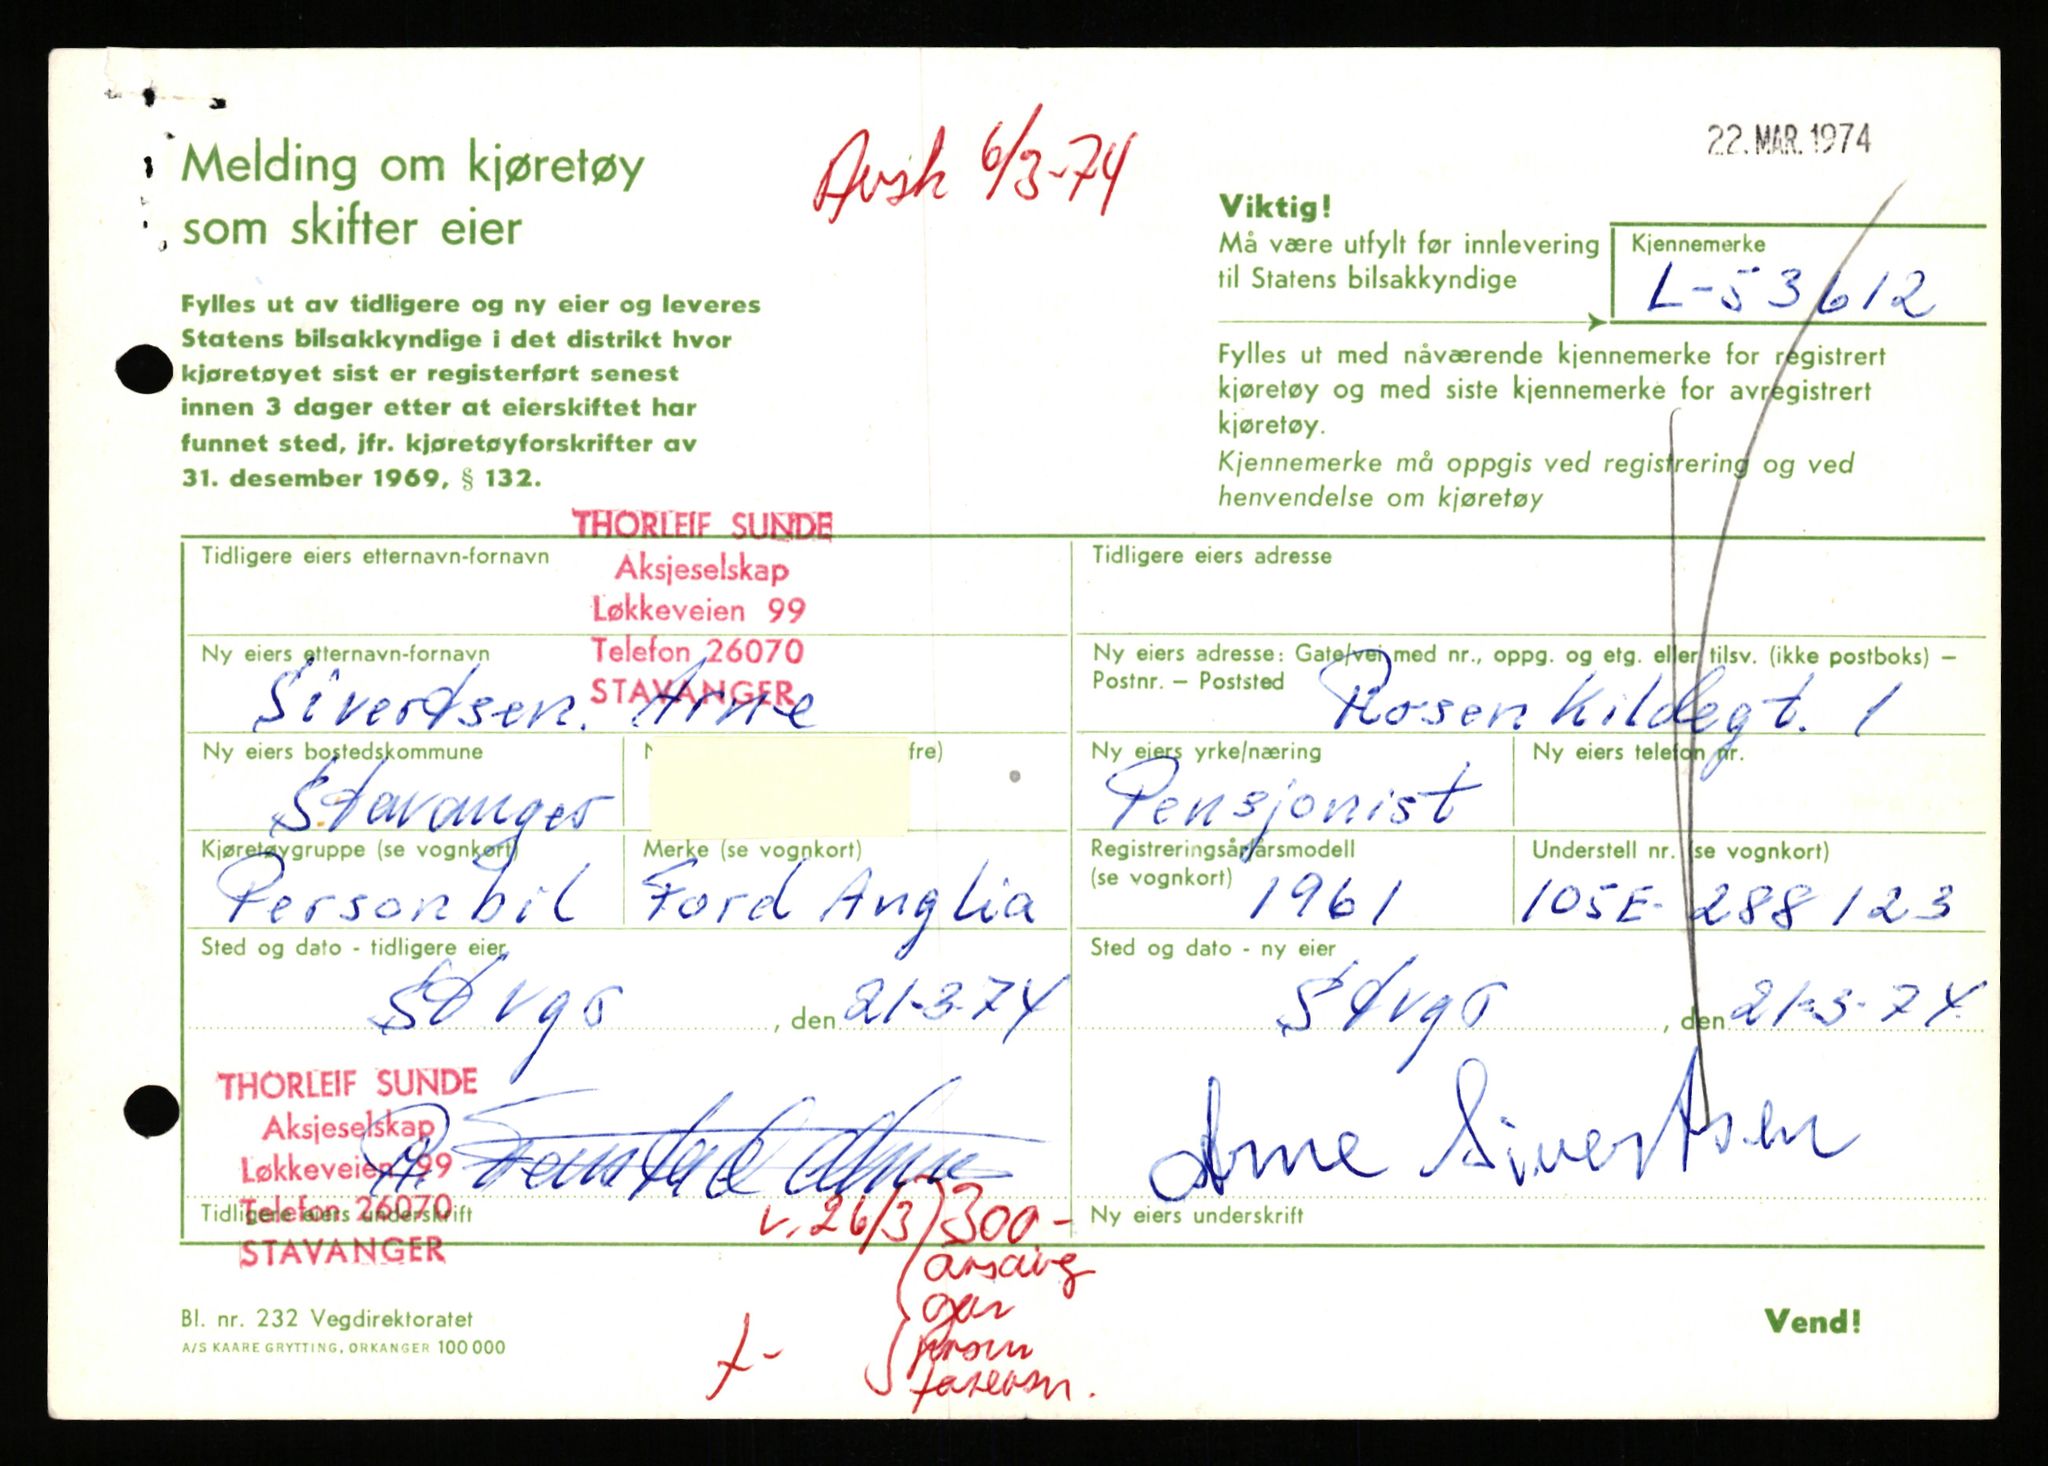 22. MAR. 1974
Avsk 6/3-74
Melding om kjøretøy
som skifter eier
Fylles ut av tidligere og ny eier og leveres
Statens bilsakkyndige i det distrikt hvor
kjøretøyet sist er registerført senest
innen 3 dager etter at eierskiftet har
funnet sted, jfr. kjøretøyforskrifter av
31. desember 1969, § 132.
Viktig!
Må være utfylt før innlevering
til Statens bilsakkyndige
Kjennemerke
L-53612
Fylles ut med nåværende kjennemerke for registrert
kjøretøy og med siste kjennemerke for avregistrert
kjøretøy.
Kjennemerke må oppgis ved registrering og ved
henvendelse om kjøretøy
Tidligere eiers etternavn-fornavn
THORLEIF SUNDE
Aksjeselskap
Løkkeveien 99
Telefon 26070
STAVANGER
Tidligere eiers adresse
Ny eiers etternavn-fornavn
Sivertsen. Arne
Ny eiers adresse: Gate/vei med nr., oppg. og etg. eller tilsv. (ikke postboks) –
Postnr. – Poststed
Rosenkildegt. 1
Ny eiers bostedskommune
Stavanger
fre)
Ny eiers yrke/næring
Pensjonist
Ny eiers telefon nr.
Kjøretøygruppe (se vognkort)
Personbil
Merke (se vognkort)
Ford Anglia
Registreringsår/årsmodell
(se vognkort)
1961
Understell nr. (se vognkort)
105E-288123
Sted og dato - tidligere eier
Stvgr , den 21-3-74
Sted og dato - ny eier
Stvgr , den 21-3-74
THORLEIF SUNDE
Aksjeselskap
Løkkeveien 99
Telefon 26070
STAVANGER
Tidligere eiers underskrift
Arne Sivertsen
Ny eiers underskrift
v. 26/3 300-
årsavg
Bl. nr. 232 Vegdirektoratet
A/S KAARE GRYTTING, ORKANGER 100 000
Vend!